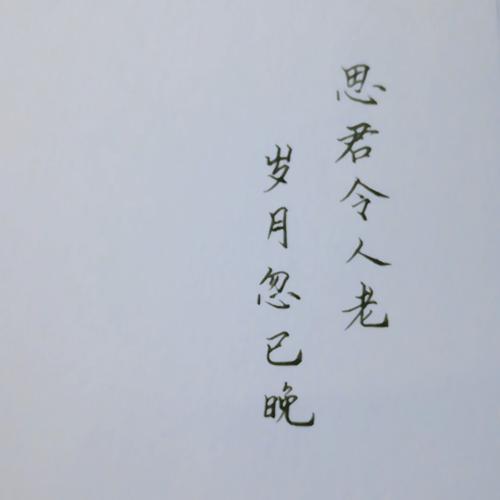 思君令人老
岁月忽已晚